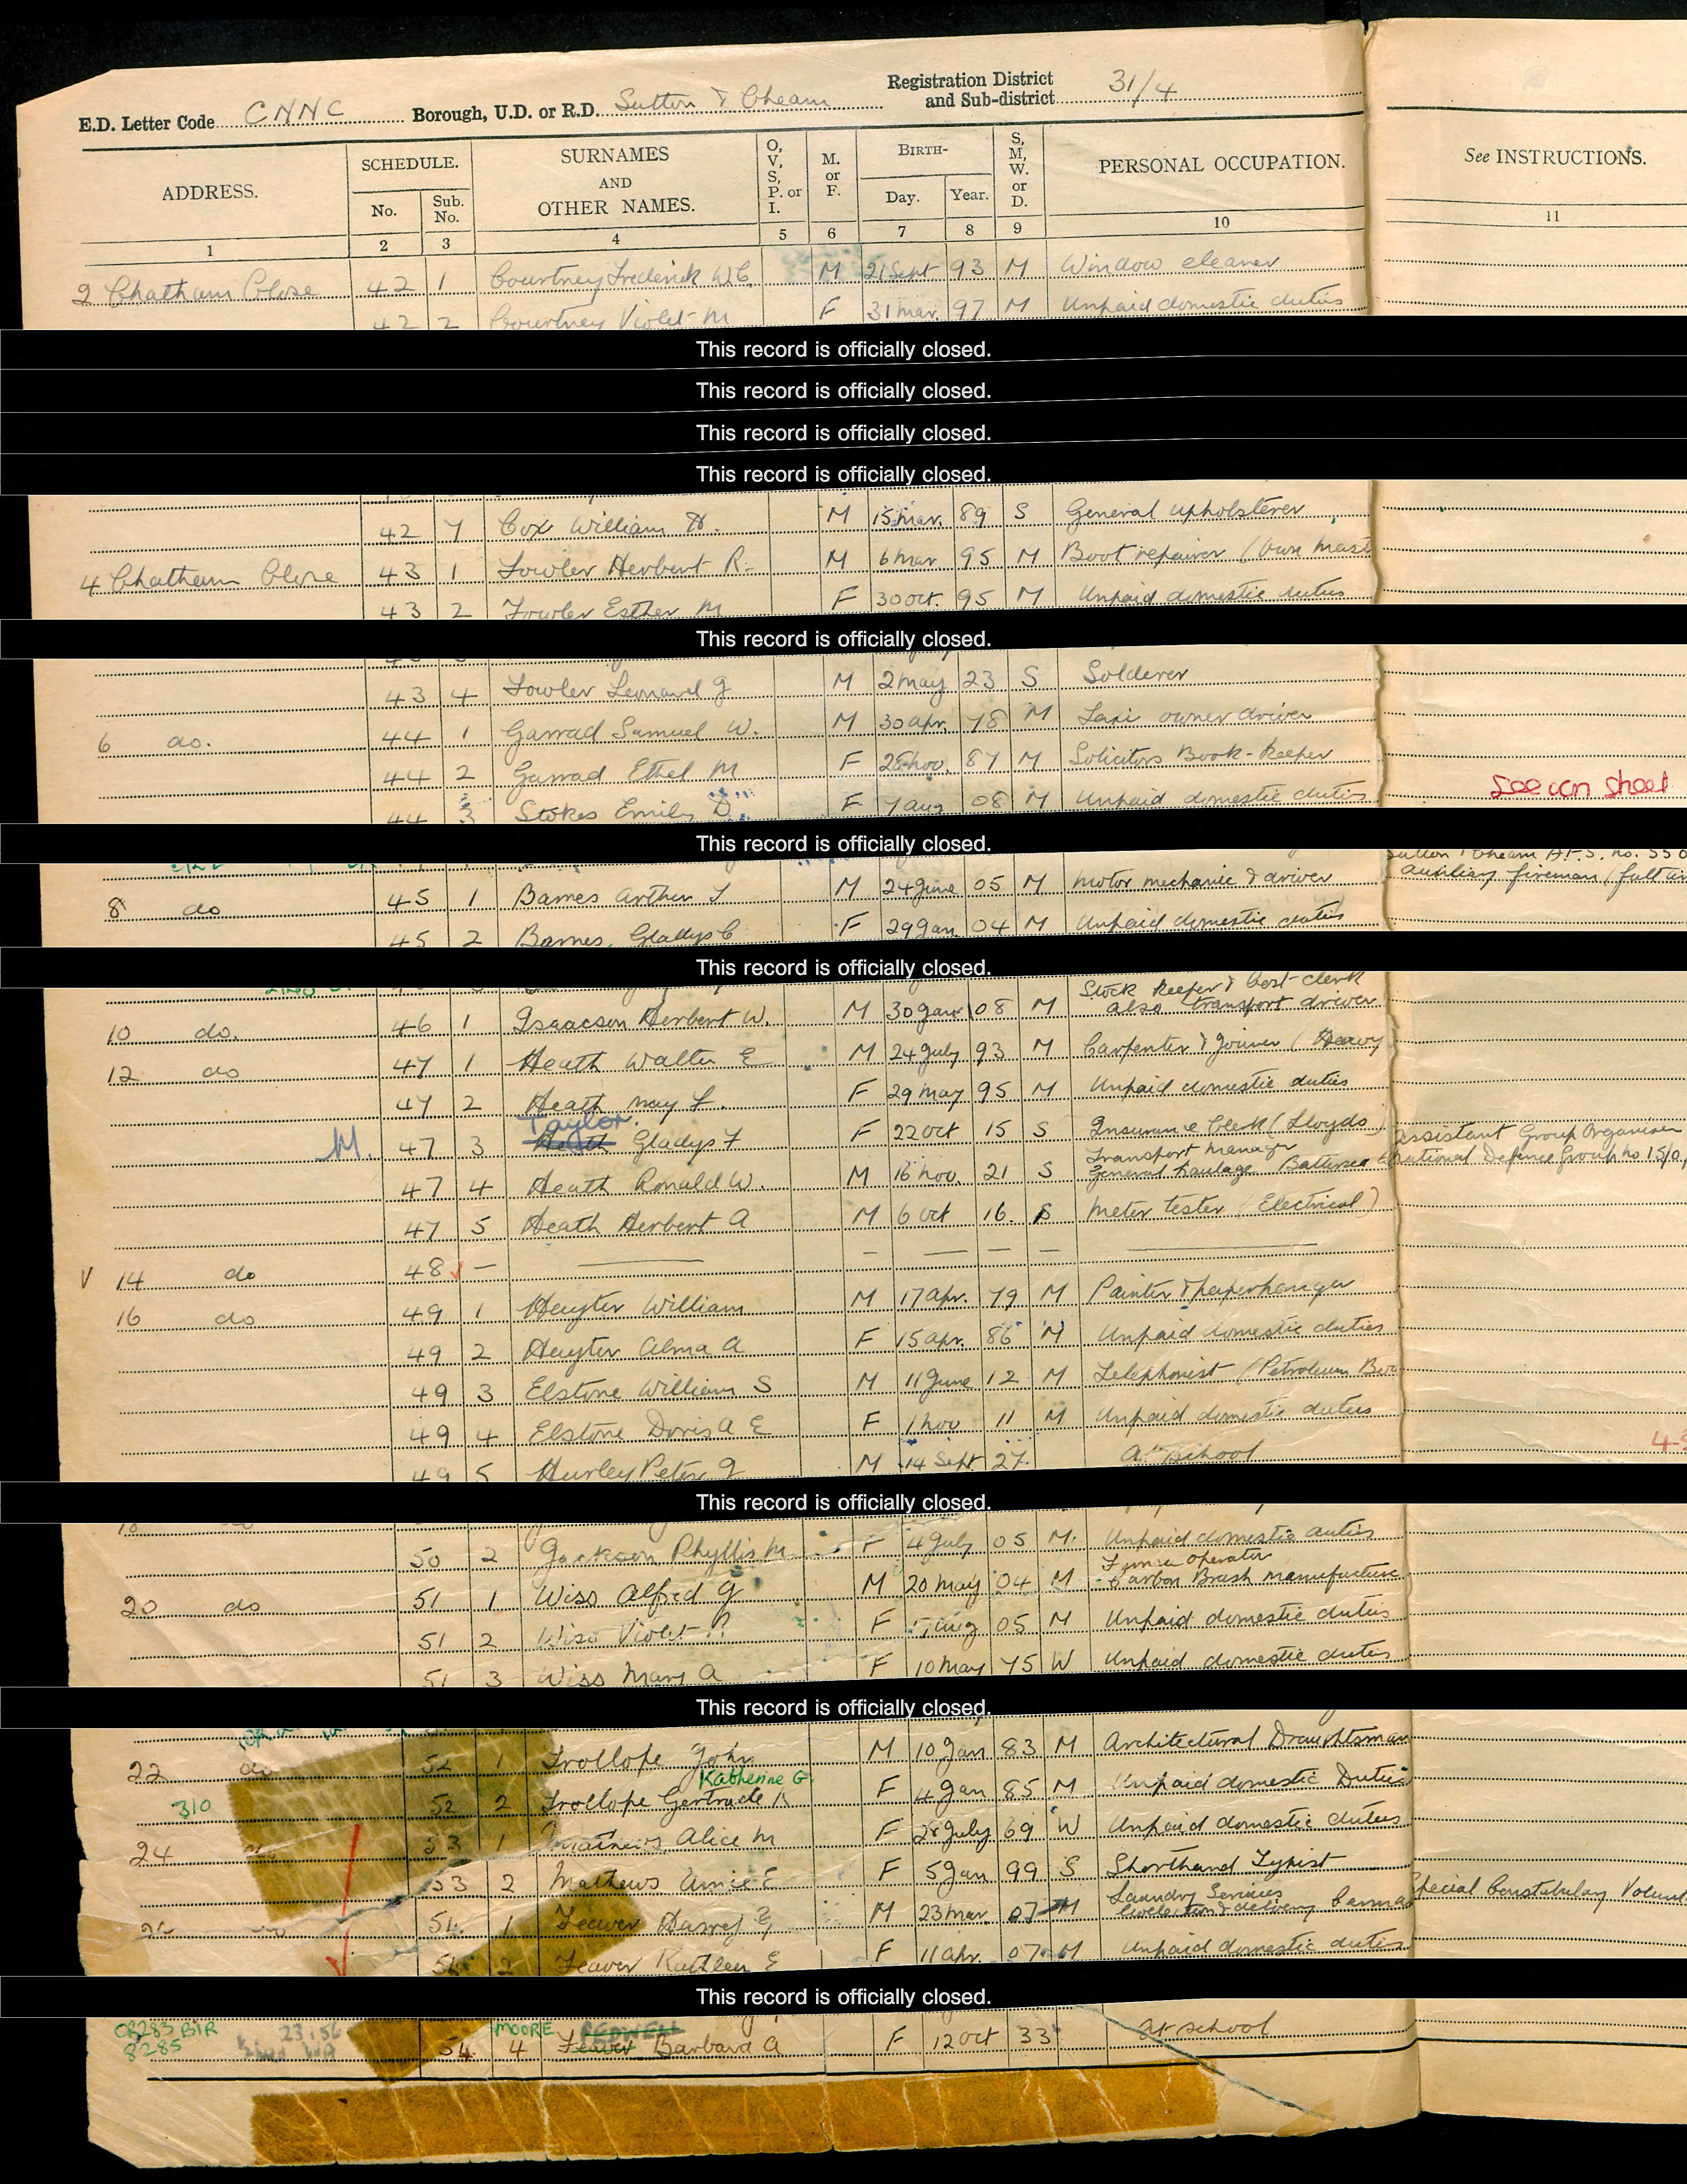 E.D. Letter Code CNNC Borough, U.D. or R.D. Sutton & Cheam Registration District and Sub-district 31/4
ADDRESS. SCHEDULE. No. Sub. No. SURNAMES AND OTHER NAMES. O, V, S, P. or I. M. or F. BIRTH- Day. Year. S, M, W. or D. PERSONAL OCCUPATION. See INSTRUCTIONS.
1 2 3 4 5 6 7 8 9 10 11
2 Chatham Close 42 1 Courtney Frederick W.C. M 21 Sept 93 M Window cleaner
42 2 Courtney Violet M F 31 Mar. 97 M Unpaid domestic duties
This record is officially closed.
This record is officially closed.
This record is officially closed.
This record is officially closed.
42 7 Cox William H. M 15 Mar. 89 S General upholsterer
4 Chatham Close 43 1 Fowler Herbert R. M 6 Mar 95 M Boot repairer (Own mast
43 2 Fowler Esther M F 30 Oct. 95 M Unpaid domestic duties
This record is officially closed.
43 4 Fowler Leonard G M 2 May 23 S Solderer
6 do. 44 1 Garrad Samuel W. M 30 Apr. 78 M Taxi owner driver
44 2 Garrad Ethel M F 28 Nov. 87 M Solicitors Book-keeper
44 3 Stokes Emily D. F 7 Aug 08 M Unpaid domestic duties See con sheet
This record is officially closed.
Sutton & Cheam A.F.S. no.
8 do 45 1 Barnes Arthur F M 24 June 05 M Motor mechanic & driver Auxiliary fireman (full
45 2 Barnes Gladys C F 29 Jan. 04 M Unpaid domestic duties
This record is officially closed.
Stock keeper & Cost-clerk
10 do. 46 1 Isaacson Herbert W. M 30 Jan 08 M also transport driver
12 do 47 1 Heath Walter E M 24 July 93 M Carpenter & Joiner (Heavy
47 2 Heath May F. F 29 May 95 M Unpaid domestic duties
Taylor
M. 47 3 Heath Gladys F F 22 Oct 15 S Insurance Clerk (Lloyds) Assistant Group Organiser
Transport manager
47 4 Heath Ronald W. M 16 Nov. 21 S General haulage Battersea National Defence Group no 15/0
47 5 Heath Herbert A M 6 Oct 16. S Meter tester (Electrical)
V 14 do 48 — — — — — — —
16 do 49 1 Hayter William M 17 Apr. 79 M Painter & paperhanger
49 2 Hayter Alma A F 15 Apr. 86 M Unpaid domestic duties
49 3 Elstone William S M 11 June 12 M Telephonist (Petroleum
49 4 Elstone Doris A E F 1 Nov 11 M Unpaid domestic duties
49 5 Hurley Peter J M 14 Sept 27 At school
This record is officially closed.
50 2 Jackson Phyllis M F 4 July 05 M. Unpaid domestic duties
operator
20 do 51 1 Wiss Alfred G M 20 May 04 M Carbon Brush manufacture
51 2 Wiss Violet F Aug 05 M Unpaid domestic duties
51 3 Wiss Mary A F 10 May 75 W Unpaid domestic duties
This record is officially closed.
22 do 52 1 Trollope John M 10 Jan 83 M Architectural Draughtsman
Katherine G.
310 52 2 Trollope Gertrude K F 4 Jan 85 M Unpaid domestic Duties
24 53 1 Mathews Alice M F 28 July 69 W Unpaid domestic duties
53 2 Mathews Annie E F 5 Jan 99 S Shorthand Typist
Laundry Services
54 1 Feaver Harry M 23 Mar. 07 M Collection & delivery Special Constabulary
54 2 Feaver Kathleen E F 11 Apr. 07 M Unpaid domestic duties
This record is officially closed.
OR283 BIR MOORE PEDWELL
8285 54 4 Feaver Barbara A F 12 Oct 33 At school